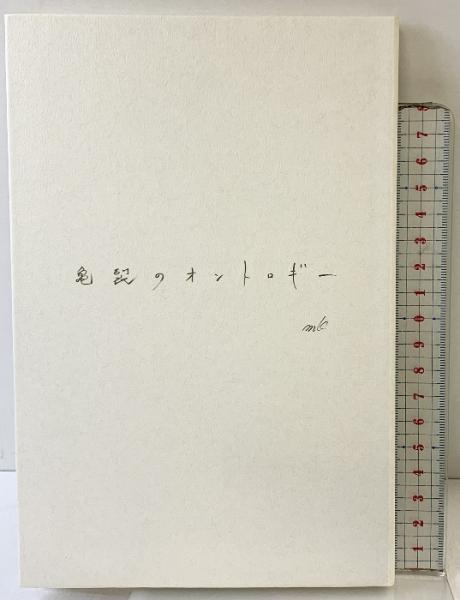 亀裂のオントロギー
mk
8
7
6
5
4
3
2
1
0
9
8
7
6
5
4
3
2
1